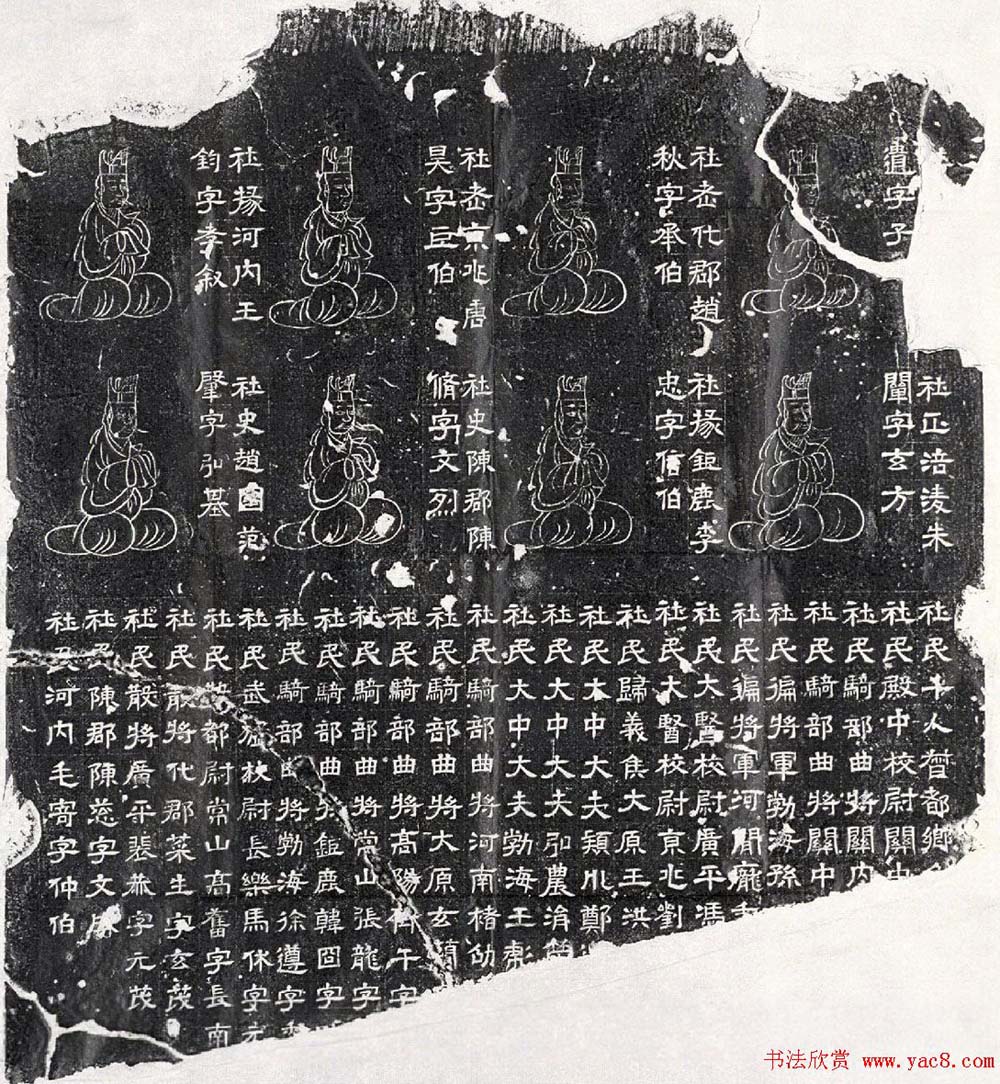 遺字子
社老代郡趙
秋字承伯
社老京兆唐
昊字巨伯
社掾河內王
鈞字孝叙
社正涪陵朱
闡字玄方
社掾鉅鹿李
忠字信伯
社史陳郡陳
脩字文烈
社史趙國范
肇字弘基
社民平人督都鄉
社民殿中校尉關中
社民騎部曲將關內
社民騎部曲將關中
社民偏將軍勃海孫
社民偏將軍河間龐
社民大醫校尉廣平馮
社民大醫校尉京兆劉
社民歸義侯大原王洪
社民大中大夫潁川鄭
社民大中大夫弘農涓
社民大中大夫勃海王彰
社民騎部曲將河南楮劭
社民騎部曲將大原玄蘭
社民騎部曲將高陽齊午字
社民騎部曲將常山張龍字
社民騎部曲將鉅鹿韓囧字
社民騎部曲將勃海徐遵字
社民武猛校尉長樂馬休字元
社民散都尉常山高舊字長南
社民散將代郡萊生字玄茂
社民散將廣平裴恭字元茂
社民陳郡陳慈字文
社民河內毛寄字仲伯
书法欣赏 www.yac8.com